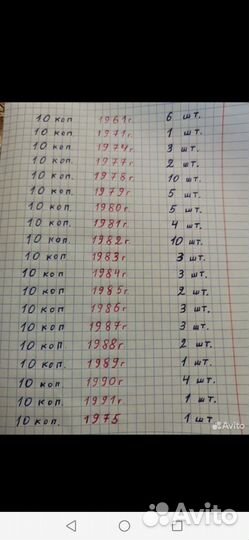 10 коп 1961г. 6 шт.
10 коп 1971г. 1 шт.
10 коп. 1974г. 3 шт.
10 коп. 1977г. 2 шт.
10 коп. 1978г. 10 шт.
10 коп. 1979г 5 шт.
10 коп. 1980г. 5 шт.
10 коп. 1981г. 4 шт.
10 коп. 1982г. 10 шт.
10 коп. 1983г. 3 шт.
10 коп 1984г. 3 шт.
10 коп. 1985г. 2 шт.
10 коп. 1986г. 3 шт.
10 коп. 1987г. 3 шт.
10 коп. 1988г 2 шт.
10 коп. 1989г. 1 шт.
10 коп 1990г 4 шт.
10 коп. 1991г. 1 шт.
10 коп. 1975 1 шт.
Avito
Avito